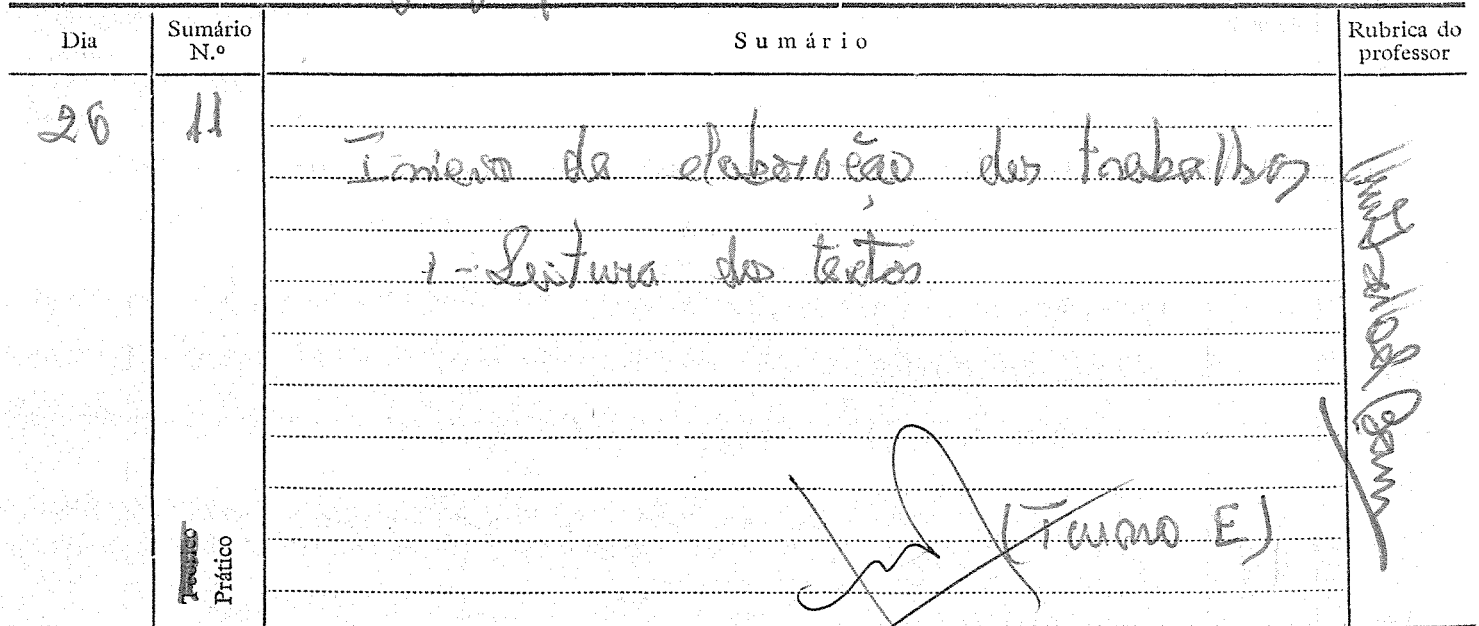 Dia
Sumário N.º
Sumário
Rubrica do professor
26
11
Início da elaboração dos trabalhos
1 - Leitura dos textos
(Turma E)
Teórico
Prático